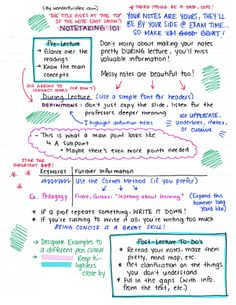 (by wonderfulideas.com)
(THERE SHOULD BE A DASH HERE)
(THE TITLE GOES AT THE TOP OF THE NOTE
NOTETAKING 101
YOUR NOTES ARE YOURS, THEY'LL
BE BY YOUR SIDE @ EXAM TIME...
SO MAKE 'EM GOOD GREAT!
Pre-Lecture
* Glance over the
readings
* Know the main
concepts
Don't worry about making your notes
pretty DURING lecture, you'll miss
valuable information!
Messy notes are beautiful too!
USE ARROWS TO
CONNECT IDEAS
During Lecture (Use a simple font for headers)
DEFINITIONS: don't just copy the slide, listen for the
professors deeper meaning
I highlight definition titles
USE UPPERCASE,
underlines, italics,
or Cursive
* This is what a main point looks like
↳ A subpoint
↳ Maybe there's even more points needed
STAR THE
IMPORTANT
Keywords
Further Information
Use the Cornell Method (if you prefer)
Ex. Pedagogy
Friere; Graber: "learning about learning"
(Expand this
however long
you'd like)
* If a prof repeats something - WRITE IT DOWN!
* If you're rushing to write it all you're writing too much
BEING CONCISE IS A GREAT SKILL!
Designate Examples to
a different pen colour
Keep hi-
lighters
close by
Post-Lecture To Do's
* Read your notes, make them
pretty, mind map, etc.
* Get clarification on the things
you don't understand
* Fill in the gaps (with info.
from the text, etc.)